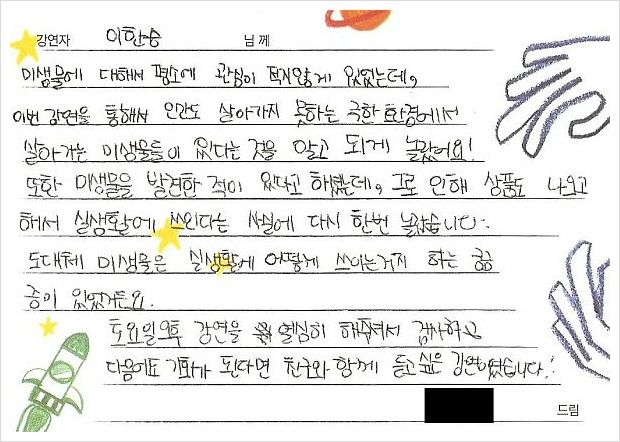 강연자 이한승 님께
미생물에 대해서 평소에 관심이 적지않게 있었는데,
이번 강연을 통해서 인간도 살아가지 못하는 극한 환경에서
살아가는 미생물들이 있다는 것을 알고 되게 놀랐어요!
또한 미생물을 발견한 적이 있다고 하셨는데, 그로 인해 상품도 나오고
해서 실생활에 쓰인다는 사실에 다시 한번 놀랐습니다.
도대체 미생물은 실생활에 어떻게 쓰이는거지 하는 궁금
증이 있었거든요.
토요일오후 강연을 열심히 해주셔서 감사하고
다음에도 기회가 된다면 친구와 함께 듣고싶은 강연이었습니다!
드림